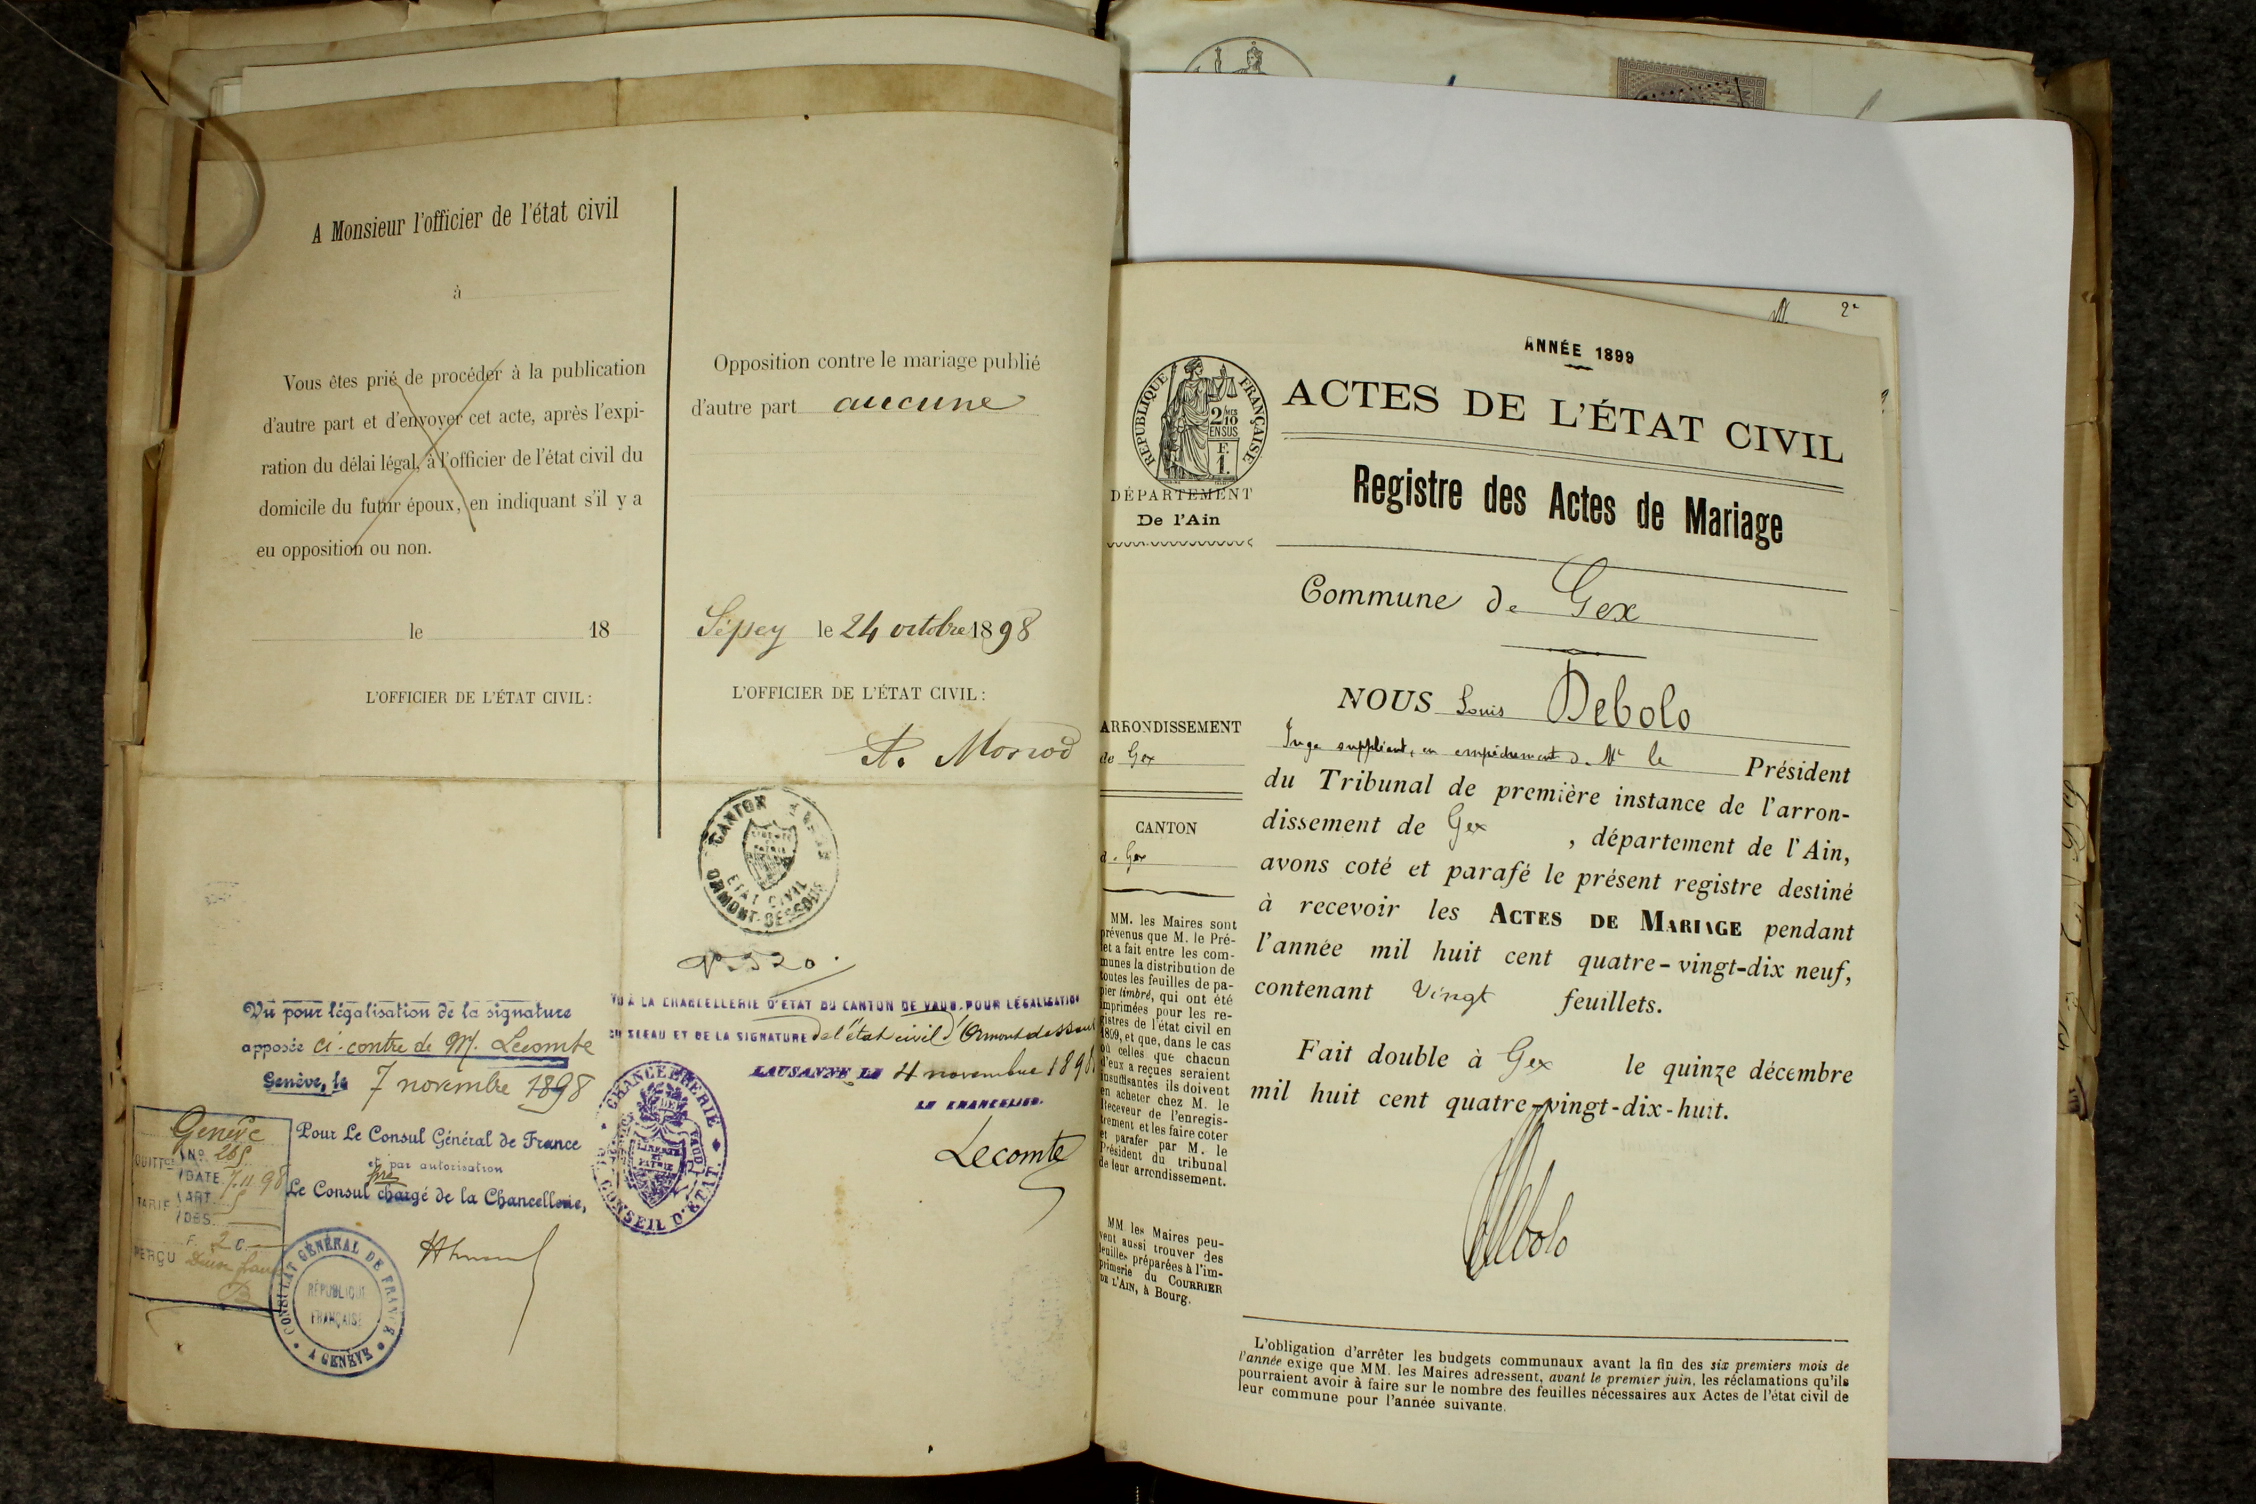 A Monsieur l'officier de l'état civil
à
Vous êtes prié de procéder à la publication
d'autre part et d'envoyer cet acte, après l'expi-
ration du délai légal, à l'officier de l'état civil du
domicile du futur époux, en indiquant s'il y a
eu opposition ou non.
le 18
L'OFFICIER DE L'ÉTAT CIVIL :
Opposition contre le mariage publié
d'autre part aucune
Sépey le 24 octobre 1898
L'OFFICIER DE L'ÉTAT CIVIL :
CANTON
LIBERTÉ
ET
PATRIE
ETAT CIVIL
ORMONT-DESSOUS
VU À LA CHANCELLERIE D'ETAT DU CANTON DE VAUD, POUR LÉGALISATION
DU SCEAU ET DE LA SIGNATURE de l'état civil d'Ormont dessous
LAUSANNE LE 4 novembre 1898
LE CHANCELIER.
Lecomte
CHANCELLERIE
DE
LIBERTÉ
ET
PATRIE
VAUD
CONSEIL D'ETAT
Vu pour légalisation de la signature
apposée ci-contre de M. Lecomte
Genève, le 7 novembre 1898
Pour Le Consul Général de France
et par autorisation
Le Consul chargé de la Chancellerie,
Genève
QUITTCE No.
DATE 7.11.98
TARIF ART.
DES.
F.
PERÇU
CONSULAT GÉNÉRAL DE FRANCE
RÉPUBLIQUE
FRANÇAISE
A GENÈVE
2e
ANNÉE 1899
ACTES DE L'ÉTAT CIVIL
RÉPUBLIQUE FRANÇAISE
2/10 EN SUS
F.
1.
DÉPARTEMENT
De l'Ain
Registre des Actes de Mariage
Commune de Gex
NOUS Louis Debolo
Juge suppléant, en empêchement de Mr le Président
du Tribunal de première instance de l'arron-
dissement de Gex , département de l'Ain,
avons coté et parafé le présent registre destiné
à recevoir les ACTES DE MARIAGE pendant
l'année mil huit cent quatre-vingt-dix neuf,
contenant Vingt feuillets.
Fait double à Gex le quinze décembre
mil huit cent quatre-vingt-dix-huit.
Debolo
ARRONDISSEMENT
de Gex
CANTON
de Gex
MM. les Maires sont
prévenus que M. le Pré-
fet a fait entre les com-
munes la distribution de
toutes les feuilles de pa-
pier timbré, qui ont été
imprimées pour les re-
gistres de l'état civil en
1899, et que, dans le cas
où celles que chacun
d'eux a reçues seraient
insuffisantes ils doivent
en acheter chez M. le
Receveur de l'enregis-
trement et les faire coter
et parafer par M. le
Président du tribunal
de leur arrondissement.
MM les Maires peu-
vent aussi trouver des
feuilles préparées à l'im-
primerie du COURRIER
DE L'AIN, à Bourg.
L'obligation d'arrêter les budgets communaux avant la fin des six premiers mois de
l'année exige que MM. les Maires adressent, avant le premier juin, les réclamations qu'ils
pourraient avoir à faire sur le nombre des feuilles nécessaires aux Actes de l'état civil de
leur commune pour l'année suivante.